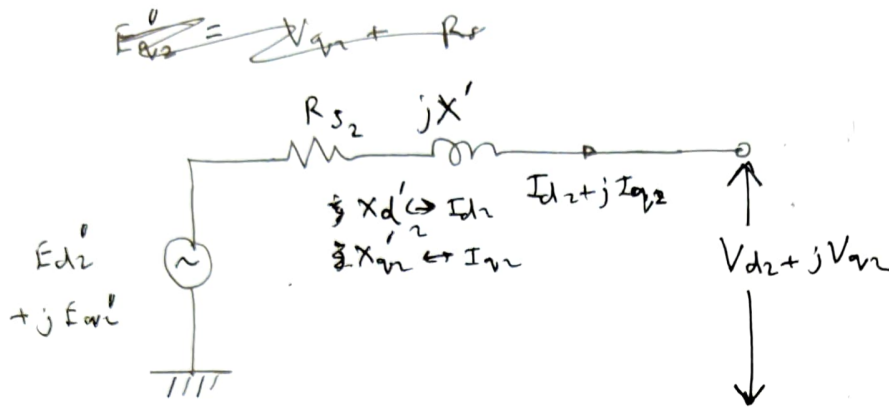 E'q2 = Vq2 + Rs
Rs2 jX'
Xd2' ↔ Id2
Xq2' ↔ Iq2
Id2 + j Iq2
Ed2'
+ j Eq2'
~
Vd2 + j Vq2